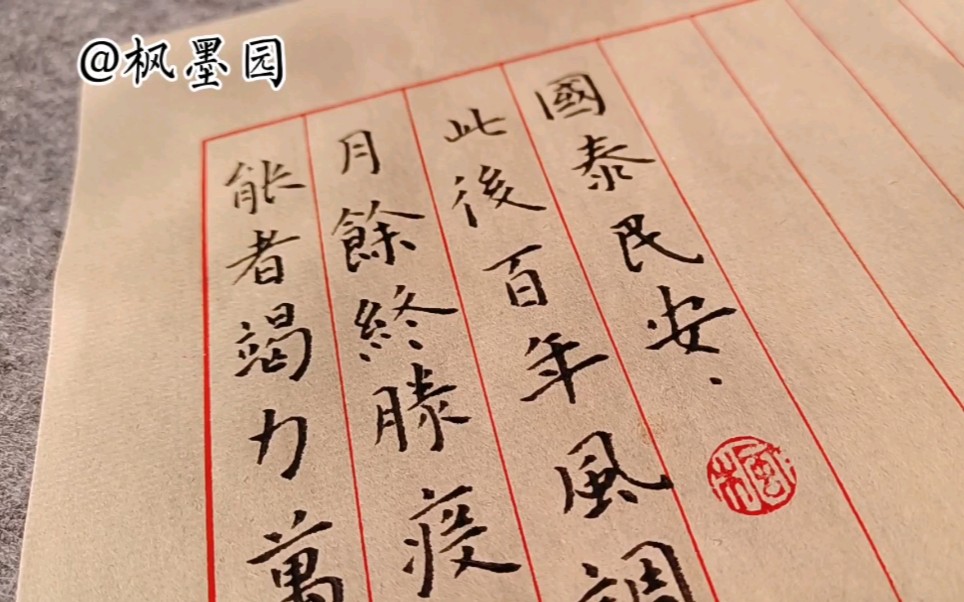 @枫墨园
能者竭力萬
月餘終勝疫
此後百年風調
國泰民安.